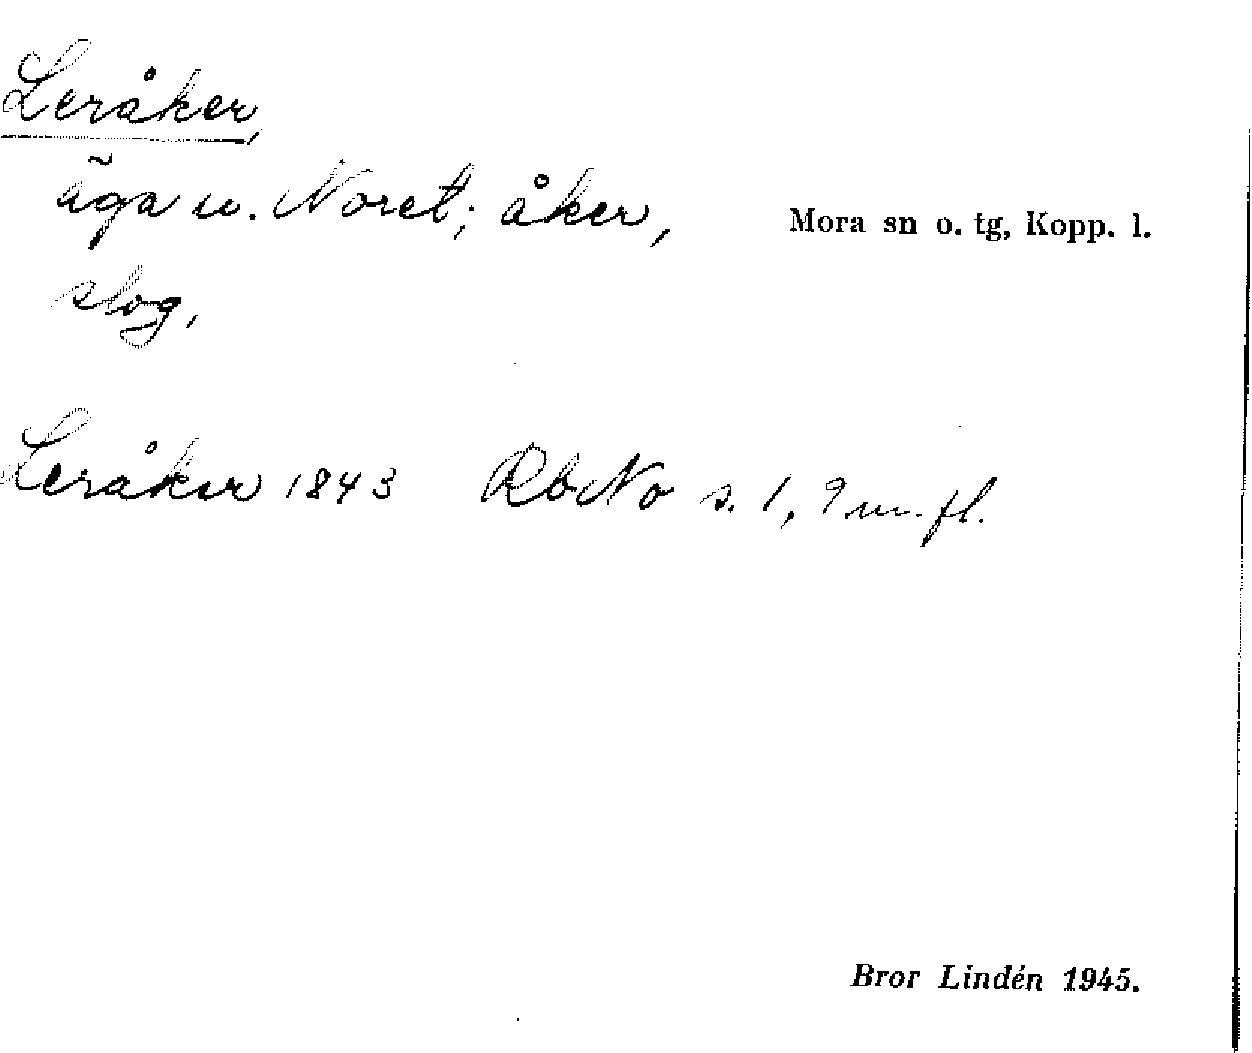 Leråker,
äga u. Noret; åker,
Mora sn o. tg, Kopp. l.
slog,
Leråker 1843 RbNo s. 1, 9 m. fl.
Bror Lindén 1945.